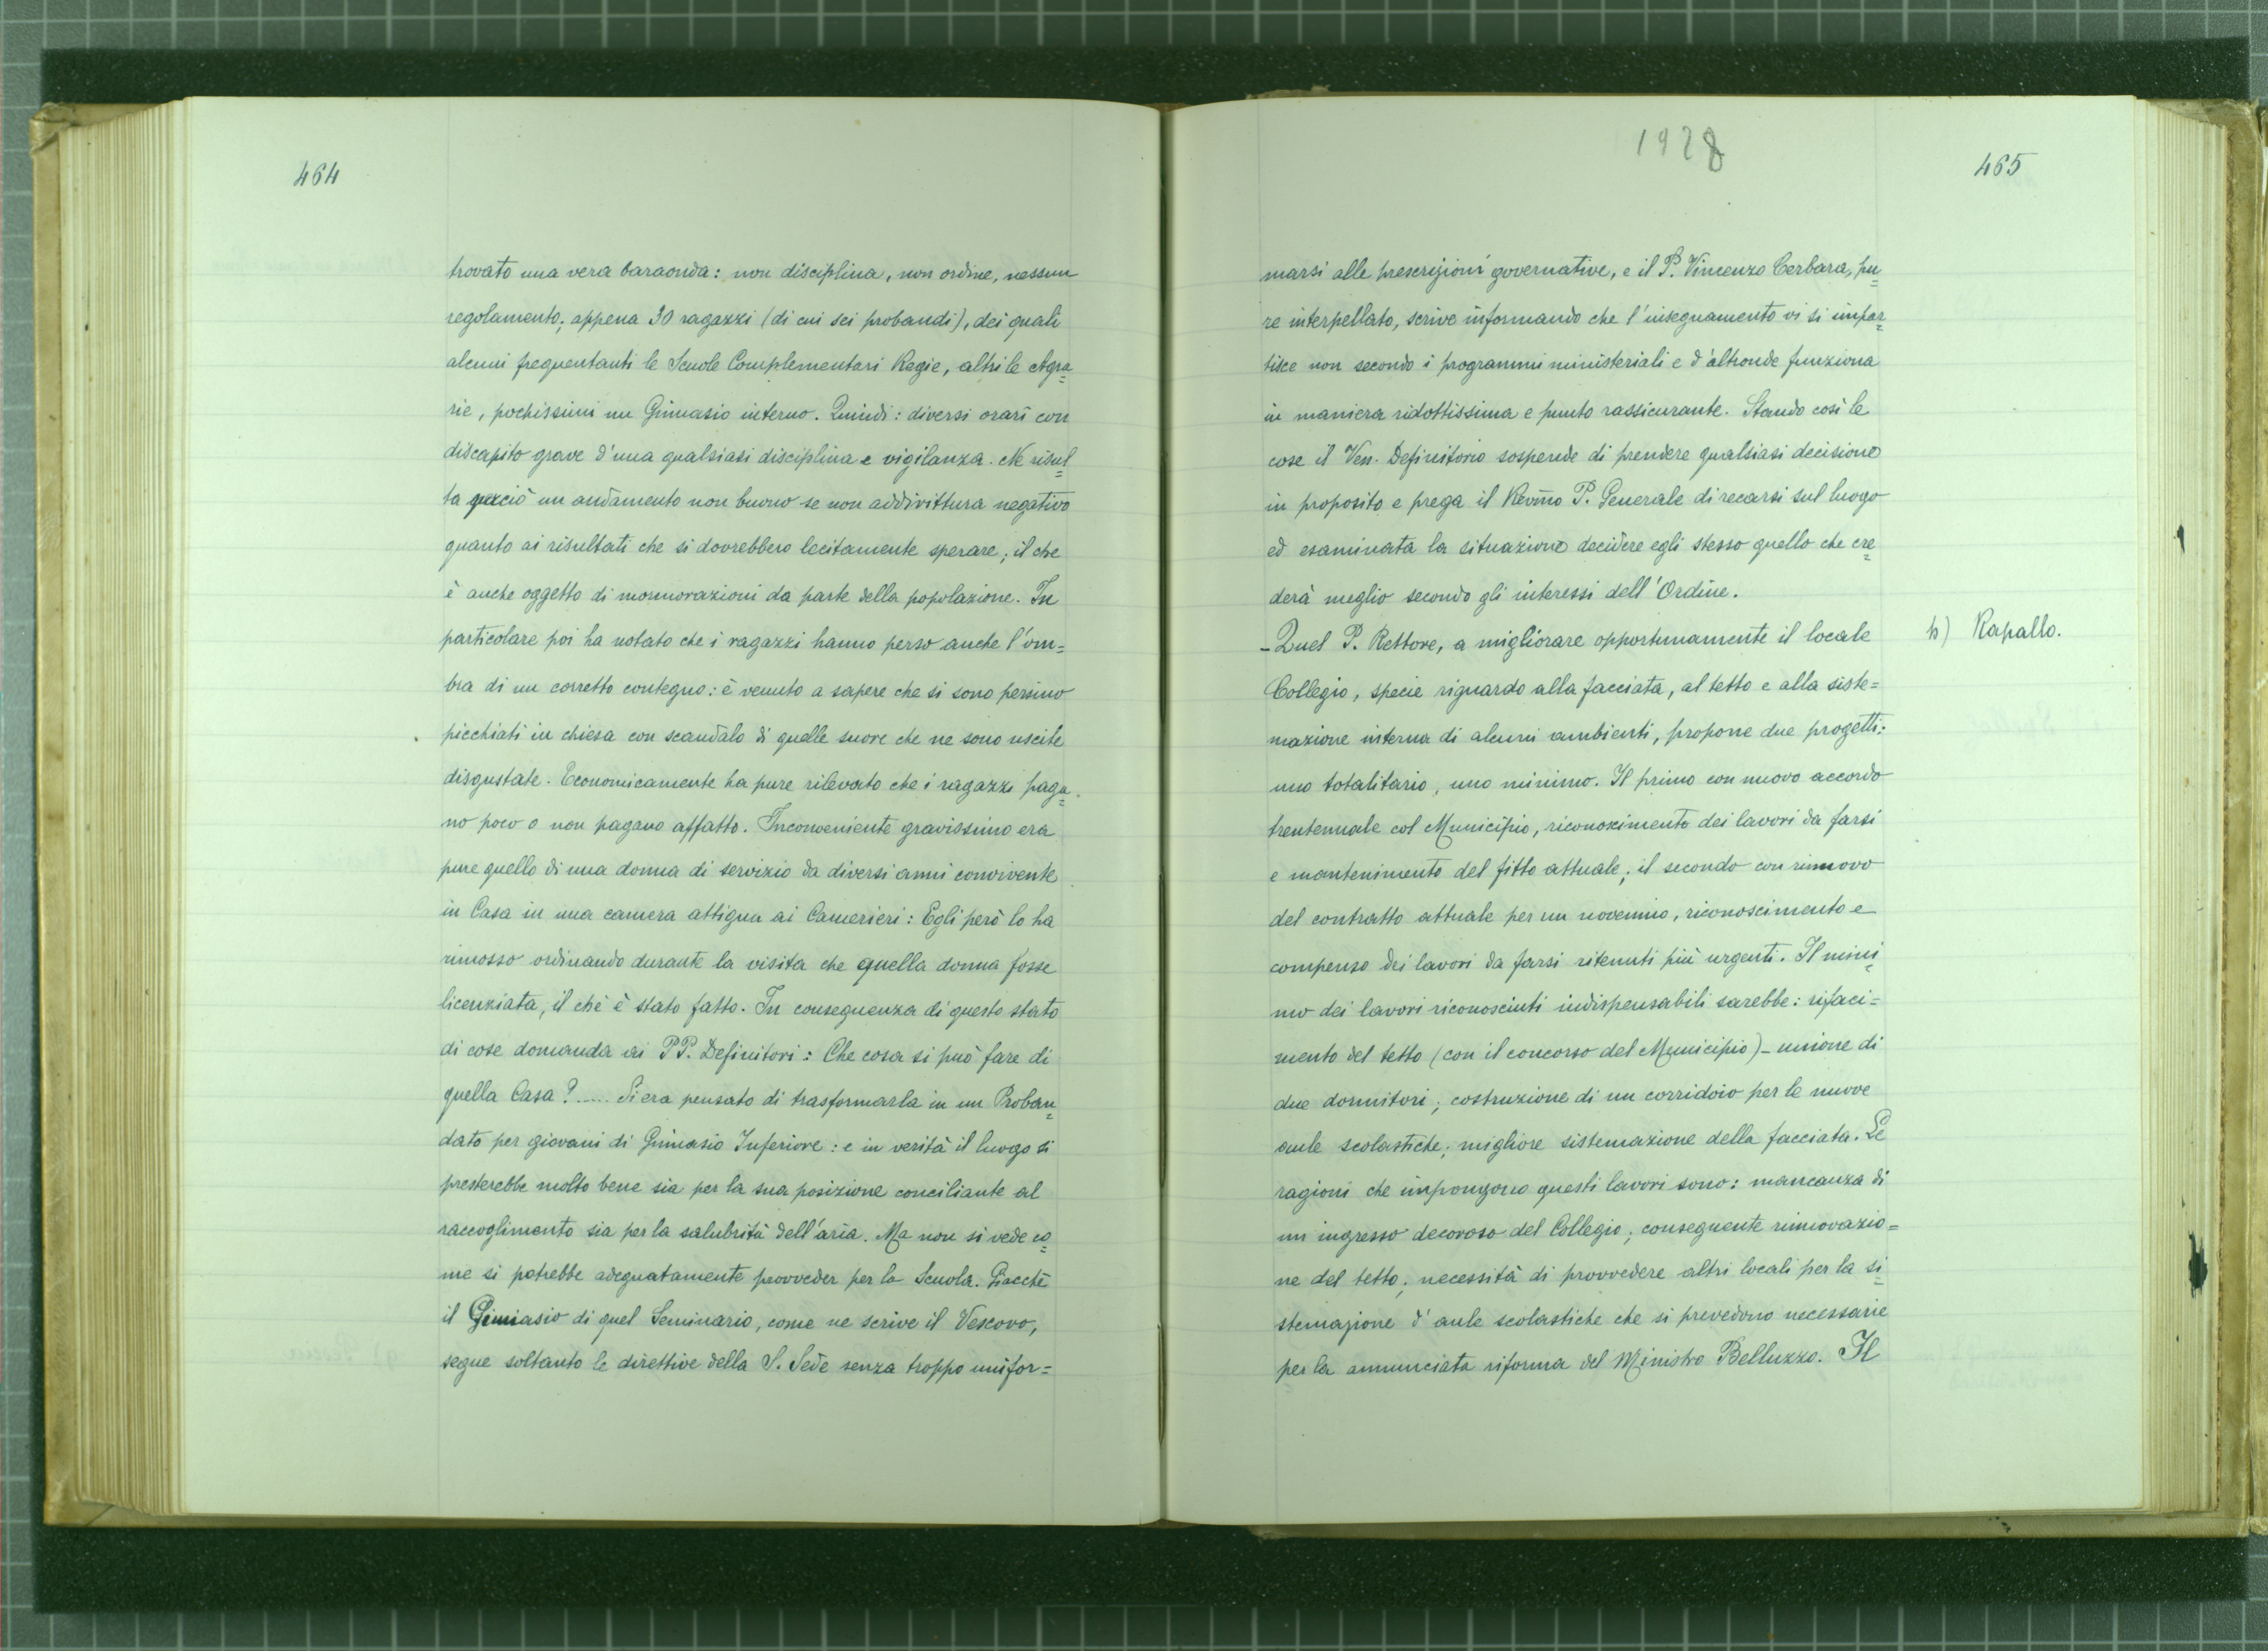 464
trovato una vera baraonda: non disciplina, non ordine, nessun
regolamento; appena 30 ragazzi (di cui sei probandi), dei quali
alcuni frequentanti le Scuole Complementari Regie, altri le Agra=
rie, pochissimi un Ginnasio interno. Quindi: diversi orari con
discapito grave d'una qualsiasi disciplina e vigilanza. Ne risul=
ta perciò un andamento non buono se non addirittura negativo
quanto ai risultati che si dovrebbero lecitamente sperare; il che
è anche oggetto di mormorazioni da parte della popolazione. In
particolare poi ha notato che i ragazzi hanno perso anche l'om=
bra di un corretto contegno: è venuto a sapere che si sono persino
picchiati in chiesa con scandalo di quelle suore che ne sono uscite
disgustate. Economicamente ha pure rilevato che i ragazzi paga=
no poco o non pagano affatto. Inconveniente gravissimo era
pure quello di una donna di servizio da diversi anni convivente
in Casa in una camera attigua ai Camerieri: Egli però lo ha
rimosso ordinando durante la visita che quella donna fosse
licenziata, il che è stato fatto. In conseguenza di questo stato
di cose domanda ai PP. Definitori: Che cosa si può fare di
quella Casa? ..... Si era pensato di trasformarla in un Proban=
dato per giovani di Ginnasio Inferiore: e in verità il luogo si
presterebbe molto bene sia per la sua posizione conciliante al
raccoglimento sia per la salubrità dell'aria. Ma non si vede co=
me si potrebbe adeguatamente provveder per la Scuola. Giacchè
il Ginnasio di quel Seminario, come ne scrive il Vescovo,
segue soltanto le direttive della S. Sede senza troppo unifor=
1928
465
marsi alle prescrizioni governative, e il P. Vincenzo Cerbara, pu=
re interpellato, scrive informando che l'insegnamento vi si impar=
tisce non secondo i programmi ministeriali e d'altronde funziona
in maniera ridottissima e punto rassicurante. Stando così le
cose il Ven. Definitorio sospende di prendere qualsiasi decisione
in proposito e prega il Revmo P. Generale di recarsi sul luogo
ed esaminata la situazione decidere egli stesso quello che cre=
derà meglio secondo gli interessi dell'Ordine.
- Quel P. Rettore, a migliorare opportunamente il locale
h) Rapallo.
Collegio, specie riguardo alla facciata, al tetto e alla siste=
mazione interna di alcuni ambienti, propone due progetti:
uno totalitario, uno minimo. Il primo con nuovo accordo
trentennale col Municipio, riconoscimento dei lavori da farsi
e mantenimento del fitto attuale; il secondo con rinnovo
del contratto attuale per un novennio, riconoscimento e
compenso dei lavori da farsi ritenuti più urgenti. Il mini=
mo dei lavori riconosciuti indispensabili sarebbe: rifaci=
mento del tetto (con il concorso del Municipio) - unione di
due dormitori; costruzione di un corridoio per le nuove
aule scolastiche; migliore sistemazione della facciata. Le
ragioni che impongono questi lavori sono: mancanza di
un ingresso decoroso del Collegio; conseguente rinnovazio=
ne del tetto; necessità di provvedere altri locali per la si=
stemazione d'aule scolastiche che si prevedono necessarie
per la annunciata riforma del Ministro Belluzzo. Il